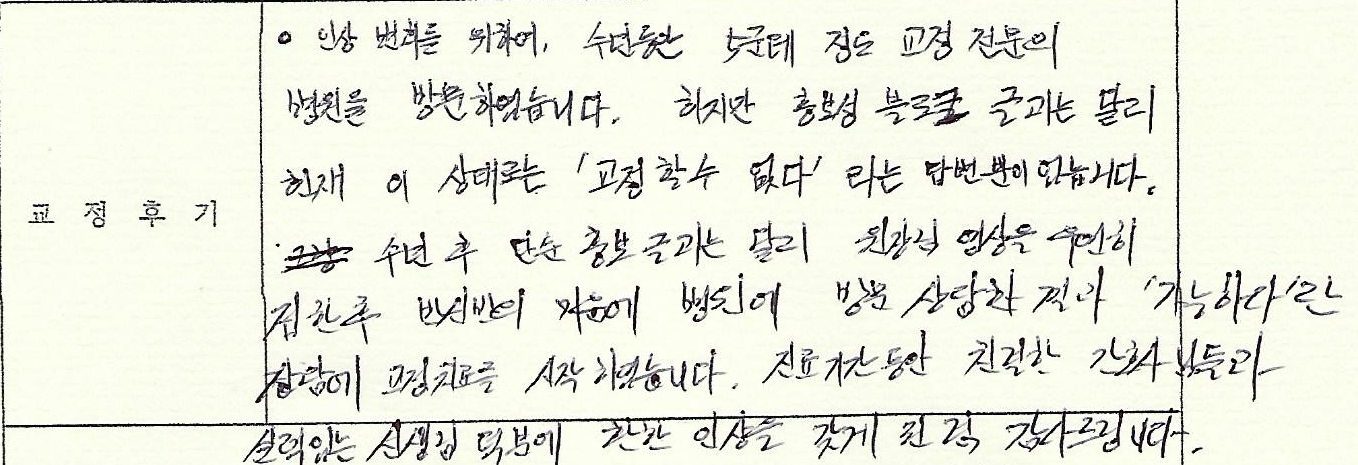 교 정 후 기
인상 변화를 위하여, 수년동안 5군데 정도 교정 전문의
병원을 방문하였습니다. 하지만 홍보성 블로그 글과는 달리
현재 이 상태로는 '교정할수 없다' 라는 답변뿐이 었습니다.
수년 후 단순 홍보 글과는 달리 원장님 영상을 우연히
접한후 반신반의 마음에 병원에 방문 상담한 결과 '가능하다'란
상담에 교정치료를 시작하였습니다. 진료기간동안 친절한 간호사님들과
실력있는 선생님 덕분에 환한 인상을 갖게 된 점 감사드립니다.